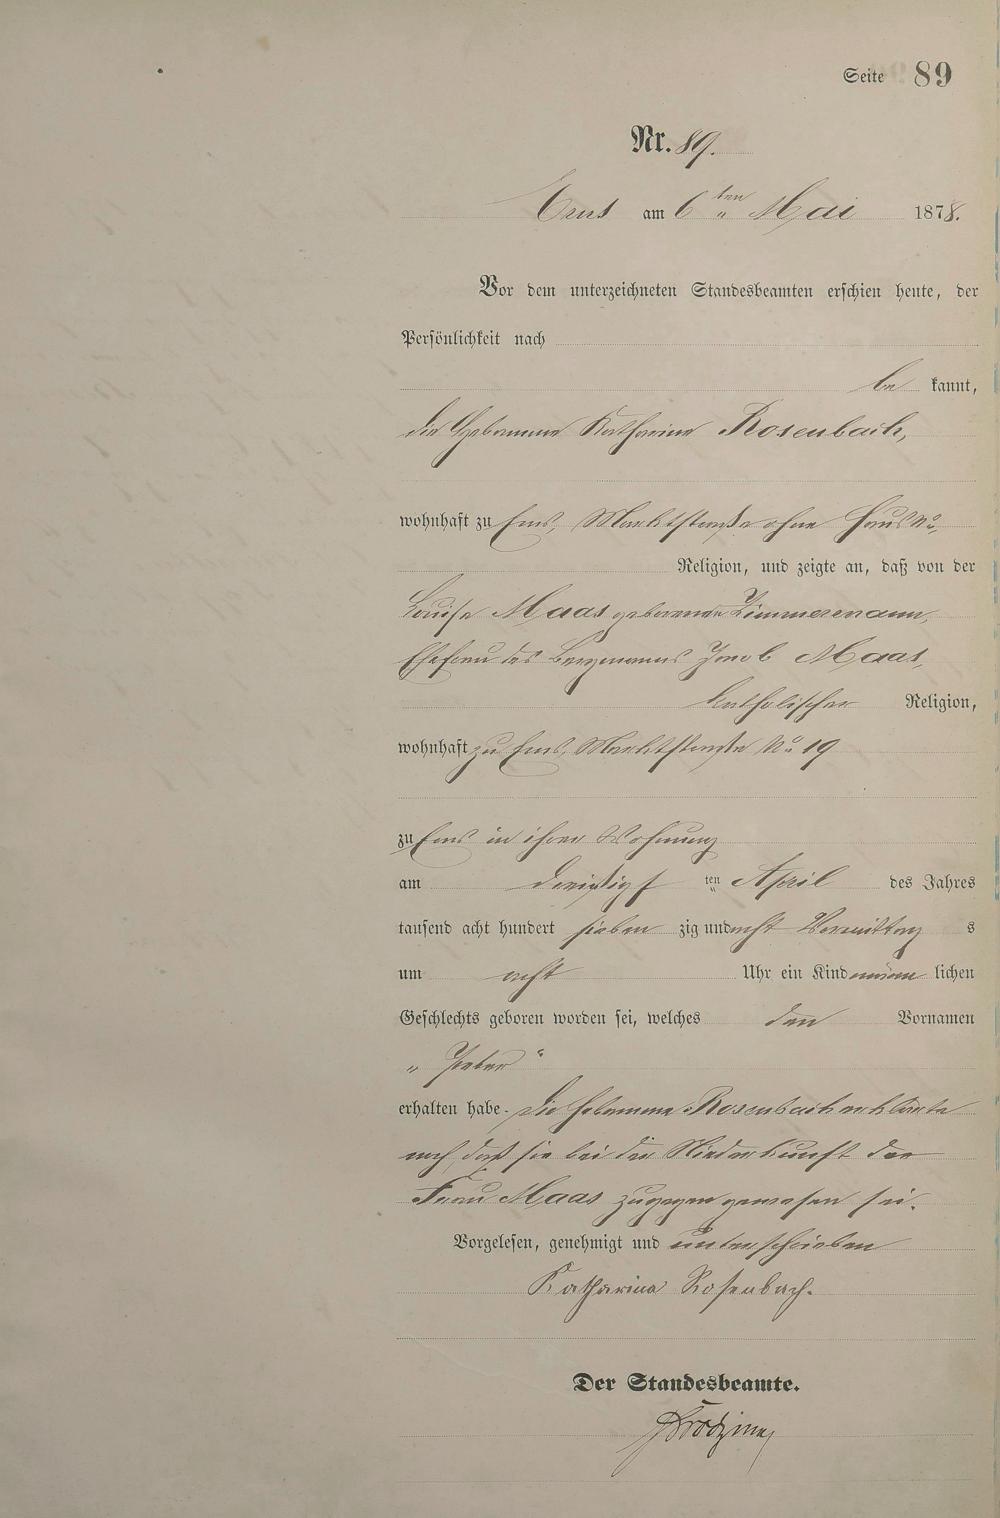 Seite 89
Nr. 89.
Ems am 6 ten Mai 1878.
Vor dem unterzeichneten Standesbeamten erschien heute, der
Persönlichkeit nach
be kannt,
die Hebamme Katharina Rosenbach,
wohnhaft zu Ems, Marktstraße ohne Haus No,
Religion, und zeigte an, daß von der
Louise Maas geborenen Zimmermann,
Ehefrau des Bergmanns Jacob Maas,
katholischer Religion,
wohnhaft zu Ems, Marktstraße No 19
zu Ems in ihrer Wohnung
am dreißigs ten April des Jahres
tausend acht hundert sieben zig und acht Vormittag s
um acht Uhr ein Kind männ lichen
Geschlechts geboren worden sei, welches den Vornamen
„ Peter “
erhalten habe. Die Hebamme Rosenbach erklärte
noch, daß sie bei der Niederkunft der
Frau Maas zugegen gewesen sei.
Vorgelesen, genehmigt und unterschrieben
Katharina Rosenbach.
Der Standesbeamte.